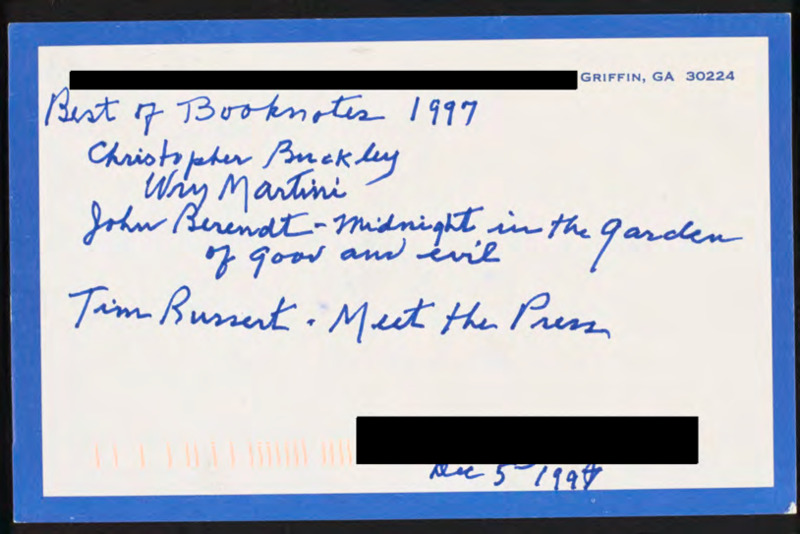 GRIFFIN, GA 30224
Best of Booknotes 1997
Christopher Buckley
Wry Martini
John Berendt - Midnight in the garden
of good and evil
Tim Russert - Meet the Press
Dec 5 1997